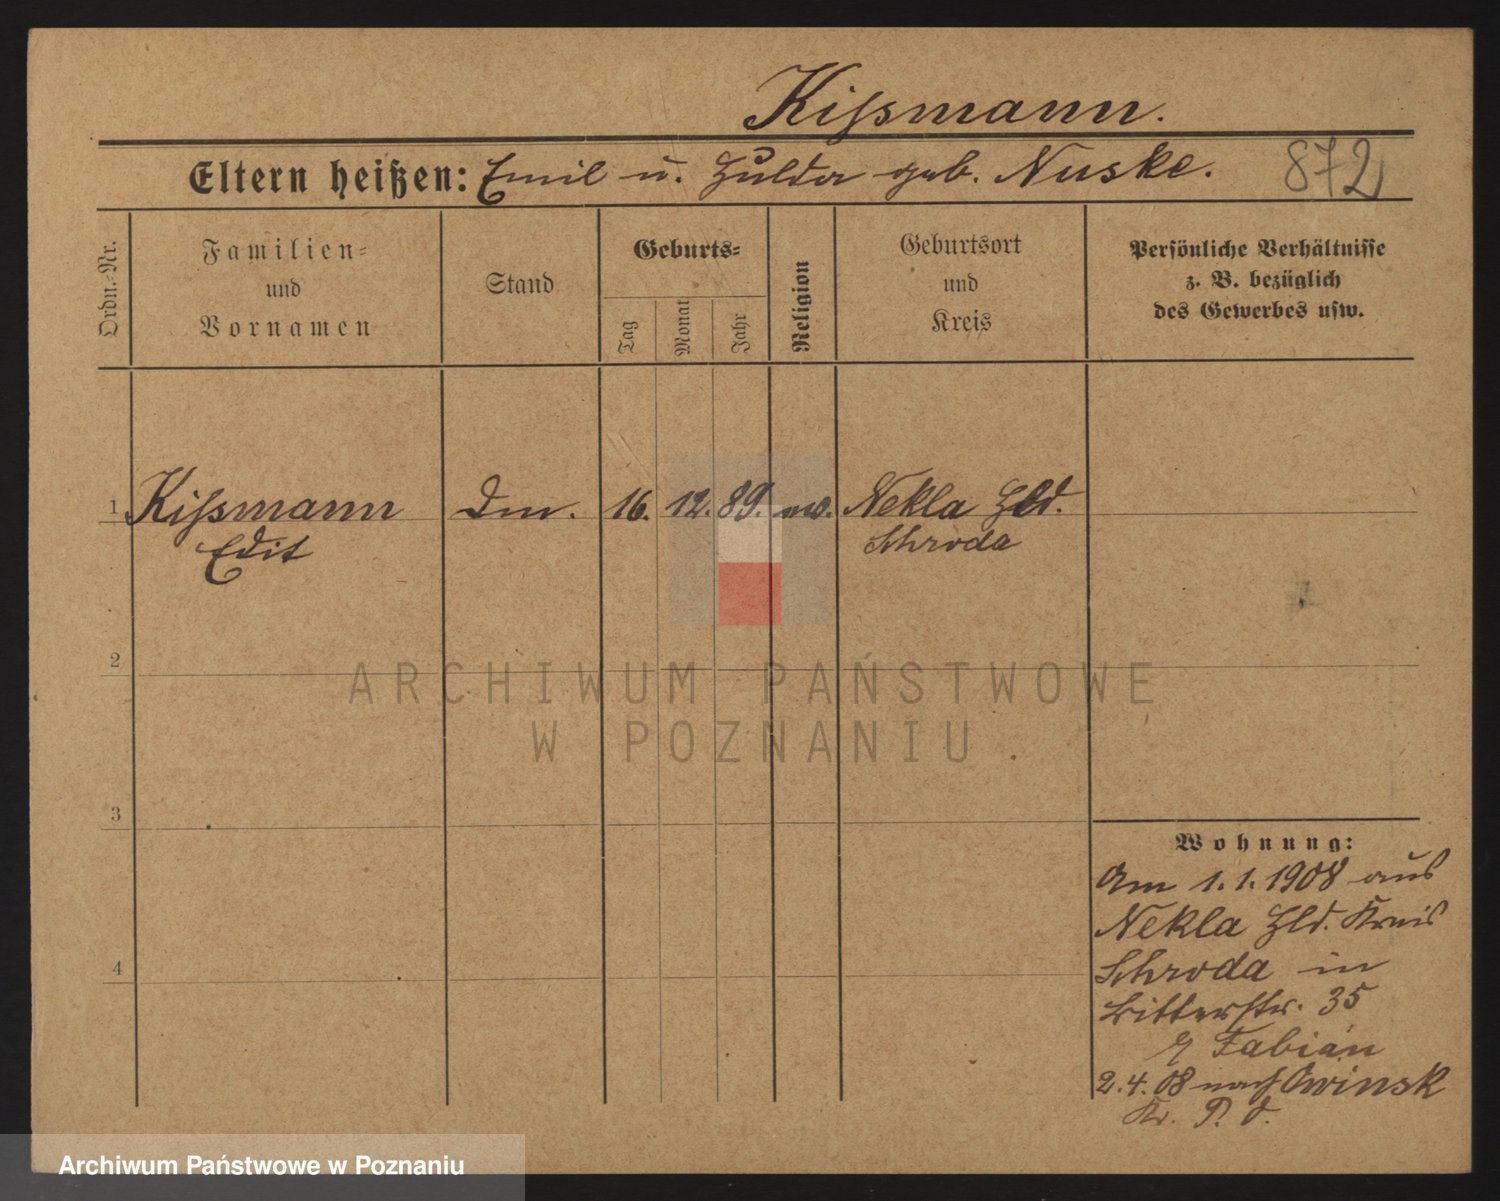 Kißmann.
Eltern heißen: Emil u. Hulda geb. Nuske.
872
Ordn.-Nr.
Familien-
und
Vornamen
Stand
Geburts-
Tag
Monat
Jahr
Religion
Geburtsort
und
Kreis
Persönliche Verhältnisse
z. B. bezüglich
des Gewerbes usw.
1 Kißmann 16. 12. 89. Nekla Hld.
Edit Schroda
2
ARCHIWUM PAŃSTWOWE
W POZNANIU
3
4
Wohnung:
Am 1.1.1908 aus
Nekla Hld. Kreis
Schroda in
Ritterstr. 35
Fabian
2.4.08 nach Owinsk
Kr. P. O.
Archiwum Państwowe w Poznaniu